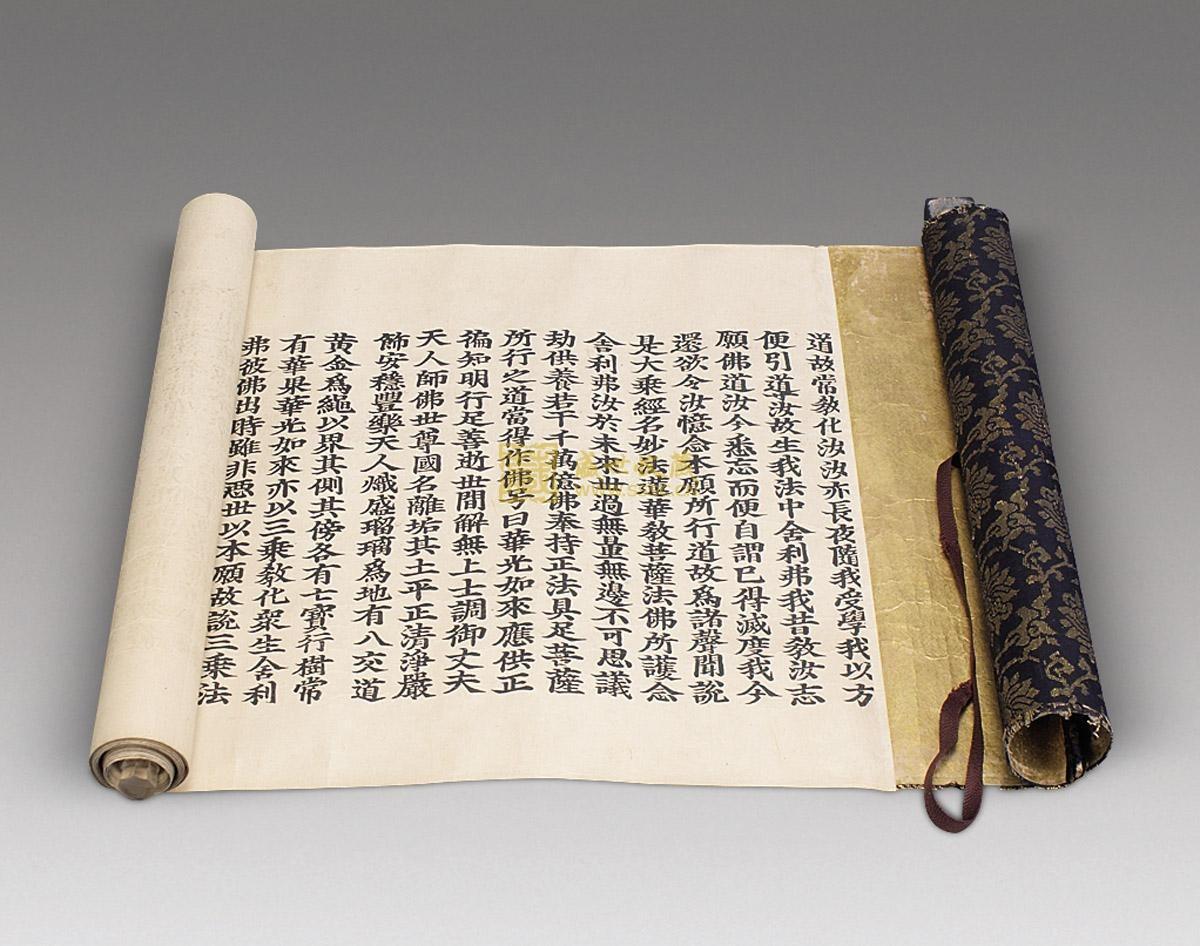 道故常教化汝汝亦長夜隨我受學我以方
便引導汝故生我法中舍利弗我昔教汝志
願佛道汝今悉忘而便自謂已得滅度我今
還欲令汝憶念本願所行道故為諸聲聞說
是大乘經名妙法蓮華教菩薩法佛所護念
舍利弗汝於未來世過無量無邊不可思議
劫供養若干千萬億佛奉持正法具足菩薩
所行之道當得作佛号曰華光如來應供正
徧知明行足善逝世間解無上士調御丈夫
天人師佛世尊國名離垢其土平正清淨嚴
飾安穩豐樂天人熾盛瑠璃為地有八交道
黃金為繩以界其側其傍各有七寶行樹常
有華果華光如來亦以三乘教化眾生舍利
弗彼佛出時雖非惡世以本願故說三乘法